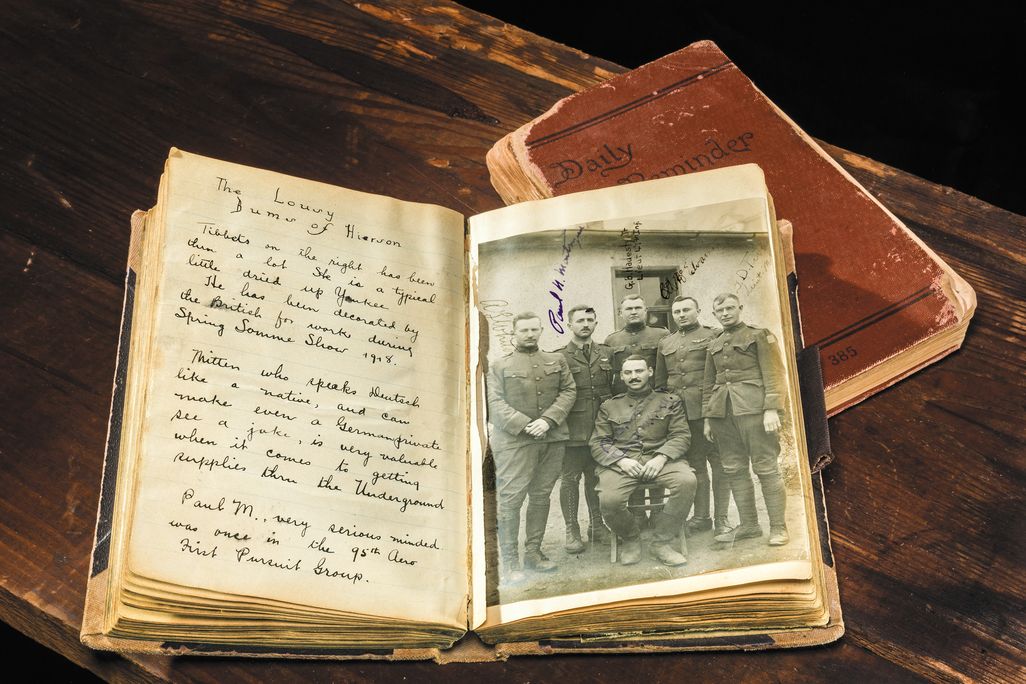 The Lousy
Bums of Hierson
Tibbets on the right has been
thru a lot She is a typical
little dried up Yankee
He has been decorated by
the British for work during
Spring Somme Show 1918.
Mitten who speaks Deutsch
like a native, and can
make even a German private
see a joke, is very valuable
when it comes to getting
supplies thru the Underground
Paul M., very serious minded
was once in the 95th Aero
First Pursuit Group.
Paul N.
Daily
Reminder
385